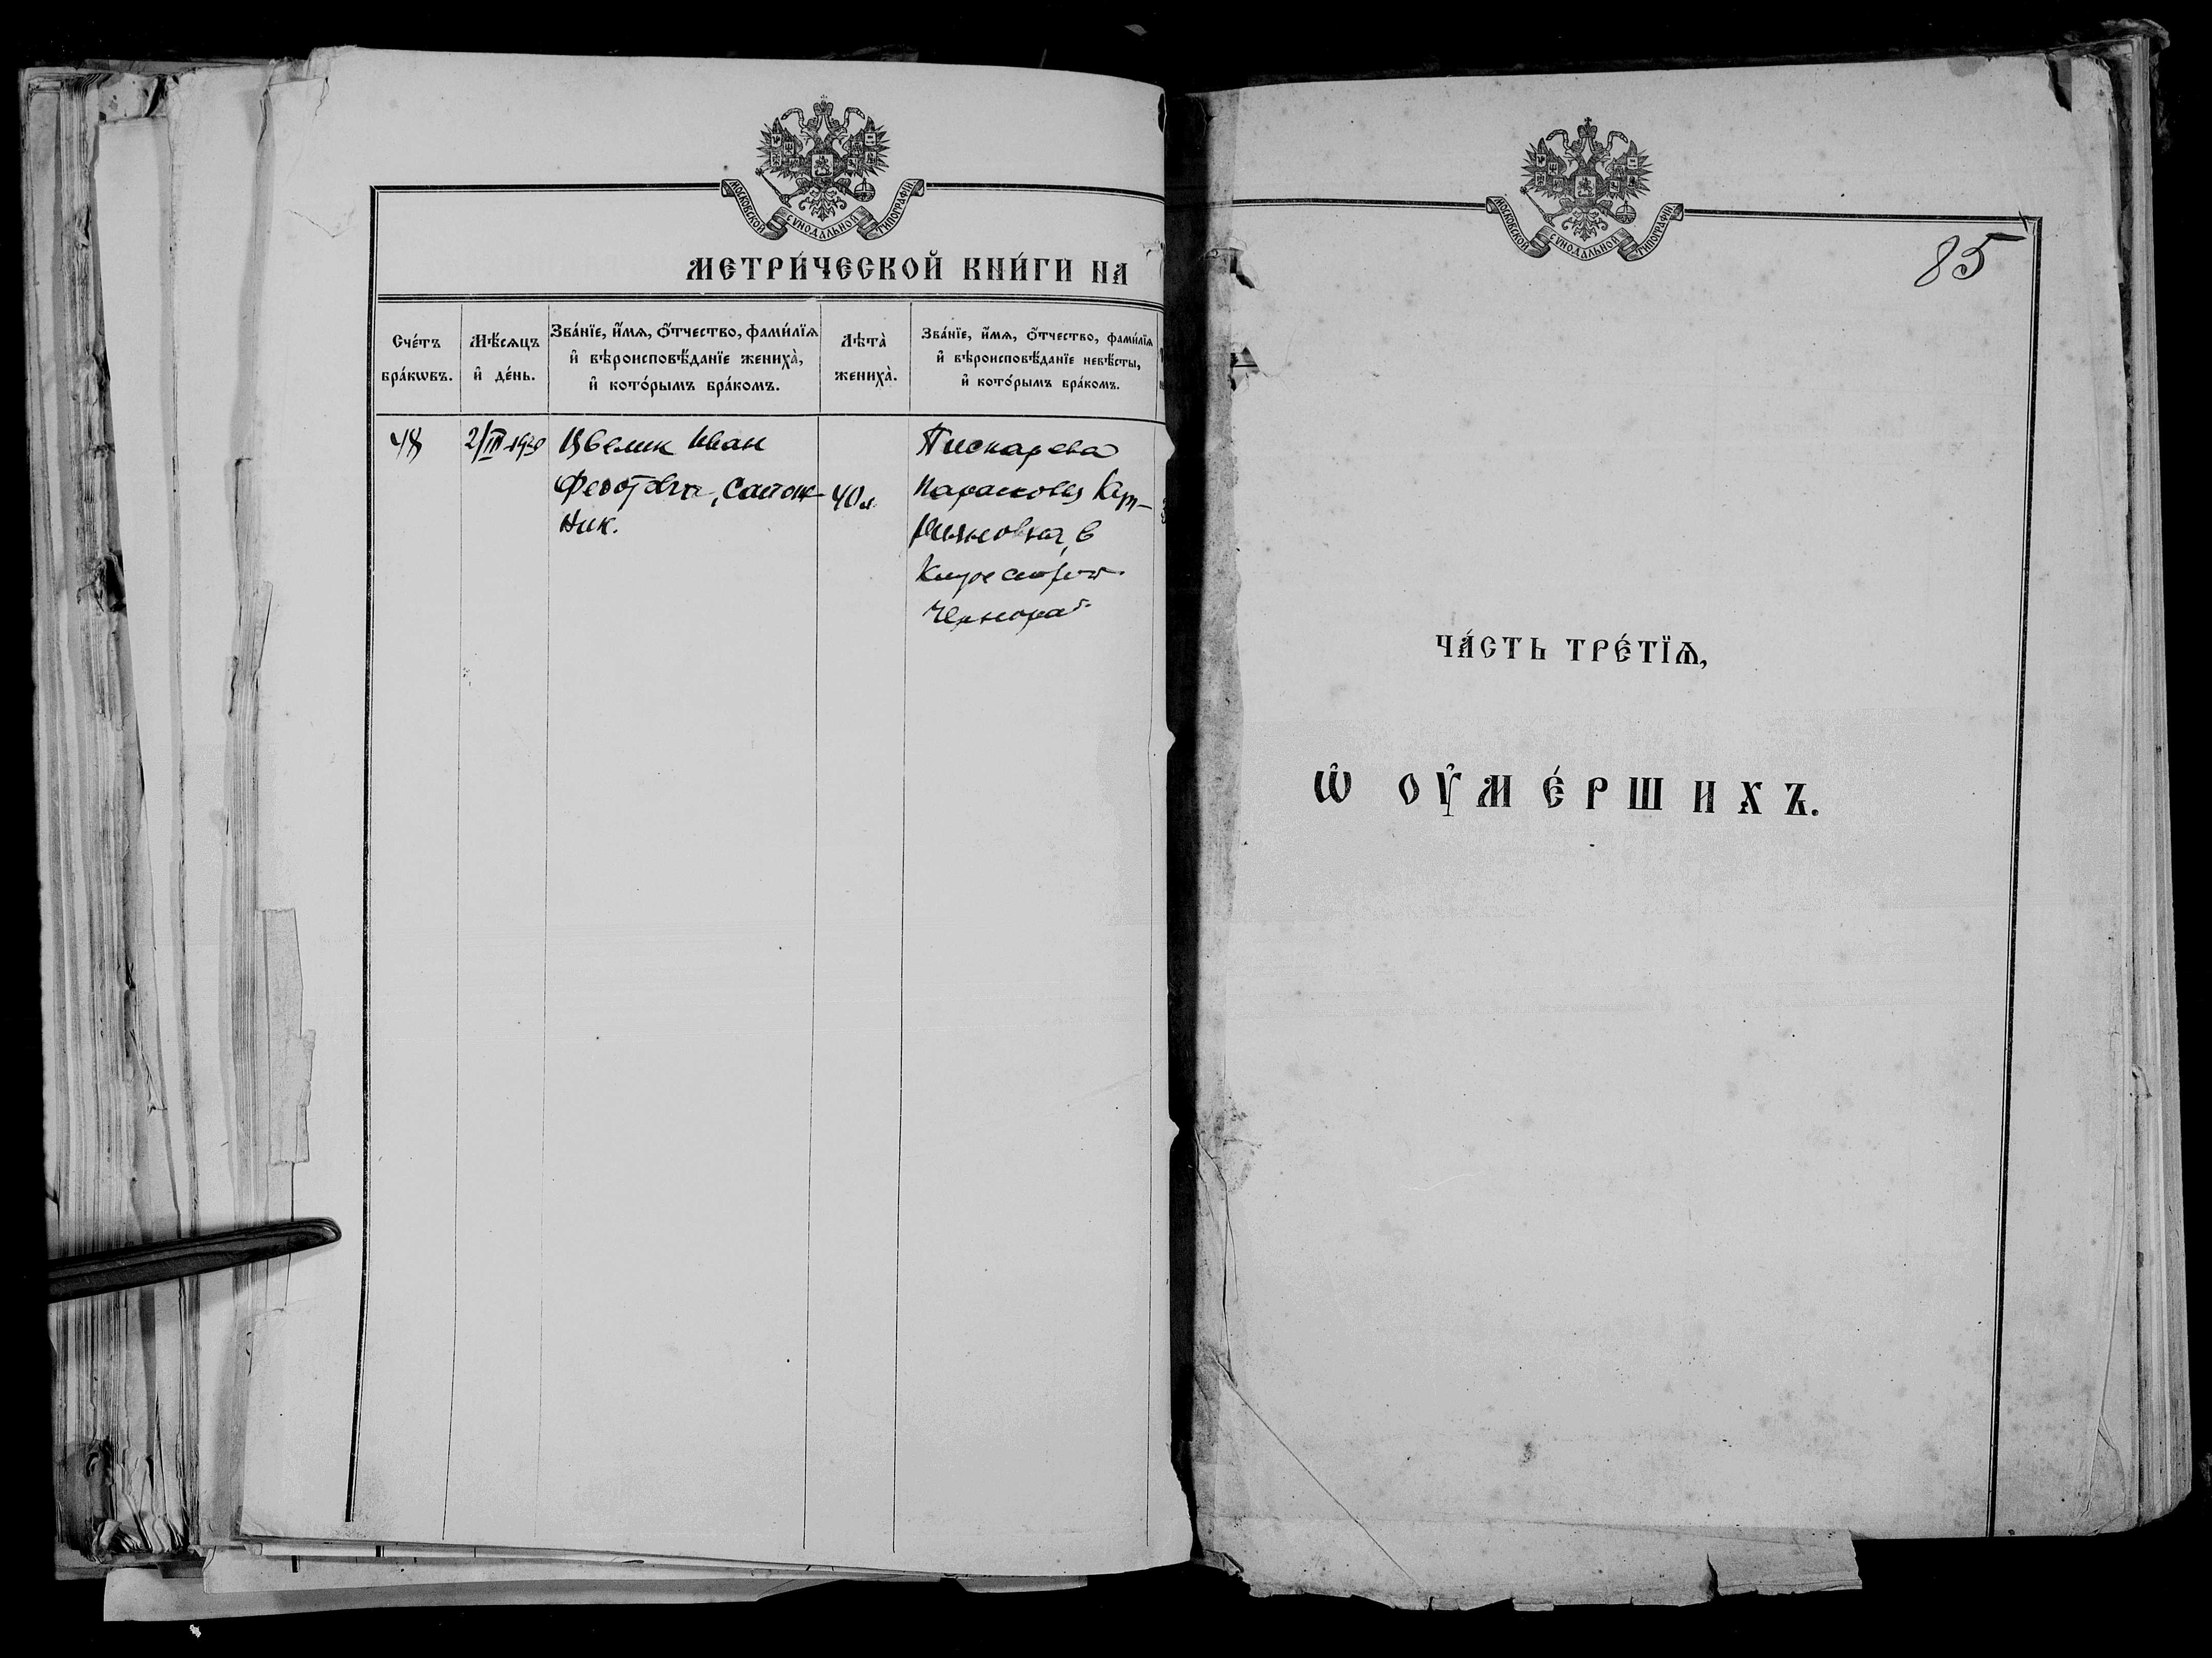 МОСКОВСКОЙ СѴНОДАЛЬНОЙ ТИПОГРАФІИ.
МЕТРИ́ЧЕСКОЙ КНИ́ГИ НА
Сче́тъ бра́кѡвъ.
Мѣ́сѧцъ и҆ де́нь.
Зва́нїе, и҆́мѧ, ѻ҆́тчество, фами́лїѧ
и҆ вѣроисповѣ́данїе женихა̀,
и҆ кото́рымъ бра́комъ.
Лѣта̀ жениха̀.
Зва́нїе, и҆́мѧ, ѻ҆́тчество, фами́лїѧ
и҆ вѣроисповѣ́данїе невѣ́сты,
и҆ кото́рымъ бра́комъ.
48
2/III 1920
Цвелик Иван
Федотович, Сапож-
ник.
40 л.
Пискарева
Парасковья
МОСКОВСКОЙ СѴНОДАЛЬНОЙ ТИПОГРАФІИ.
85
ЧА́СТЬ ТРЕ́ТЇѦ,
Ѡ҆ ОУ҆МЕ́РШИХЪ.